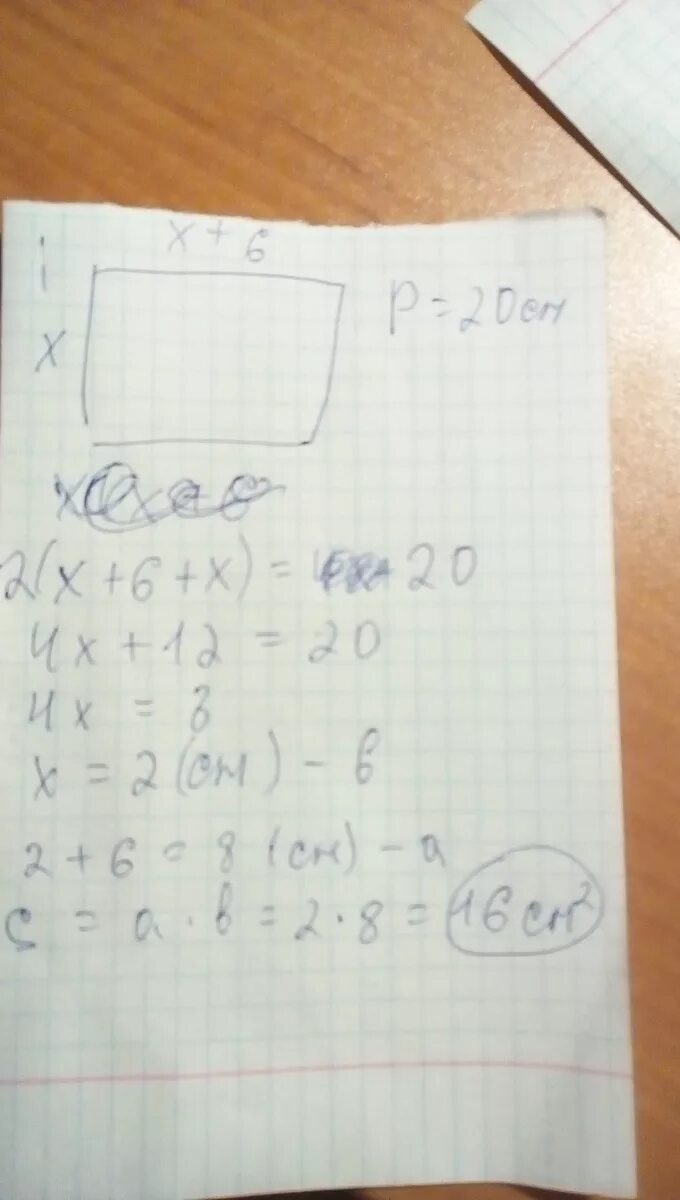 x + 6
x
P = 20 см
2(x + 6 + x) = 20
4x + 12 = 20
4x = 8
x = 2 (см) - в
2 + 6 = 8 (см) - а
S = а · в = 2 · 8 = 16 см²